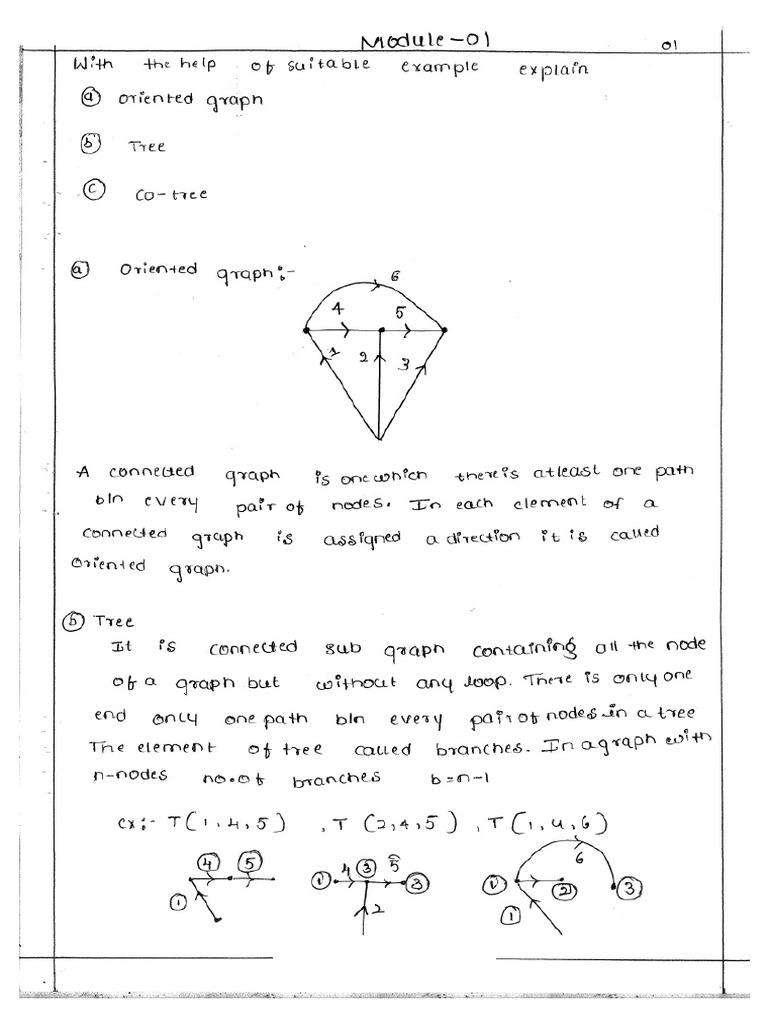 Module-01
01
With the help of suitable example explain
(a) oriented graph
(b) Tree
(c) Co-tree
(a) Oriented graph:-
6
4 5
1 2 3
A connected graph is one which there is atleast one path
b/n every pair of nodes. In each element of a
connected graph is assigned a direction it is called
Oriented graph.
(b) Tree
It is connected sub graph containing all the node
of a graph but without any loop. There is only one
end only one path b/n every pair of nodes in a tree
The element of tree called branches. In a graph with
n-nodes no. of branches b=n-1
ex:- T(1,4,5) , T (2,4,5) , T(1,4,6)
4 5
1
1 4 3 5 3
2
6
1 2 3
1